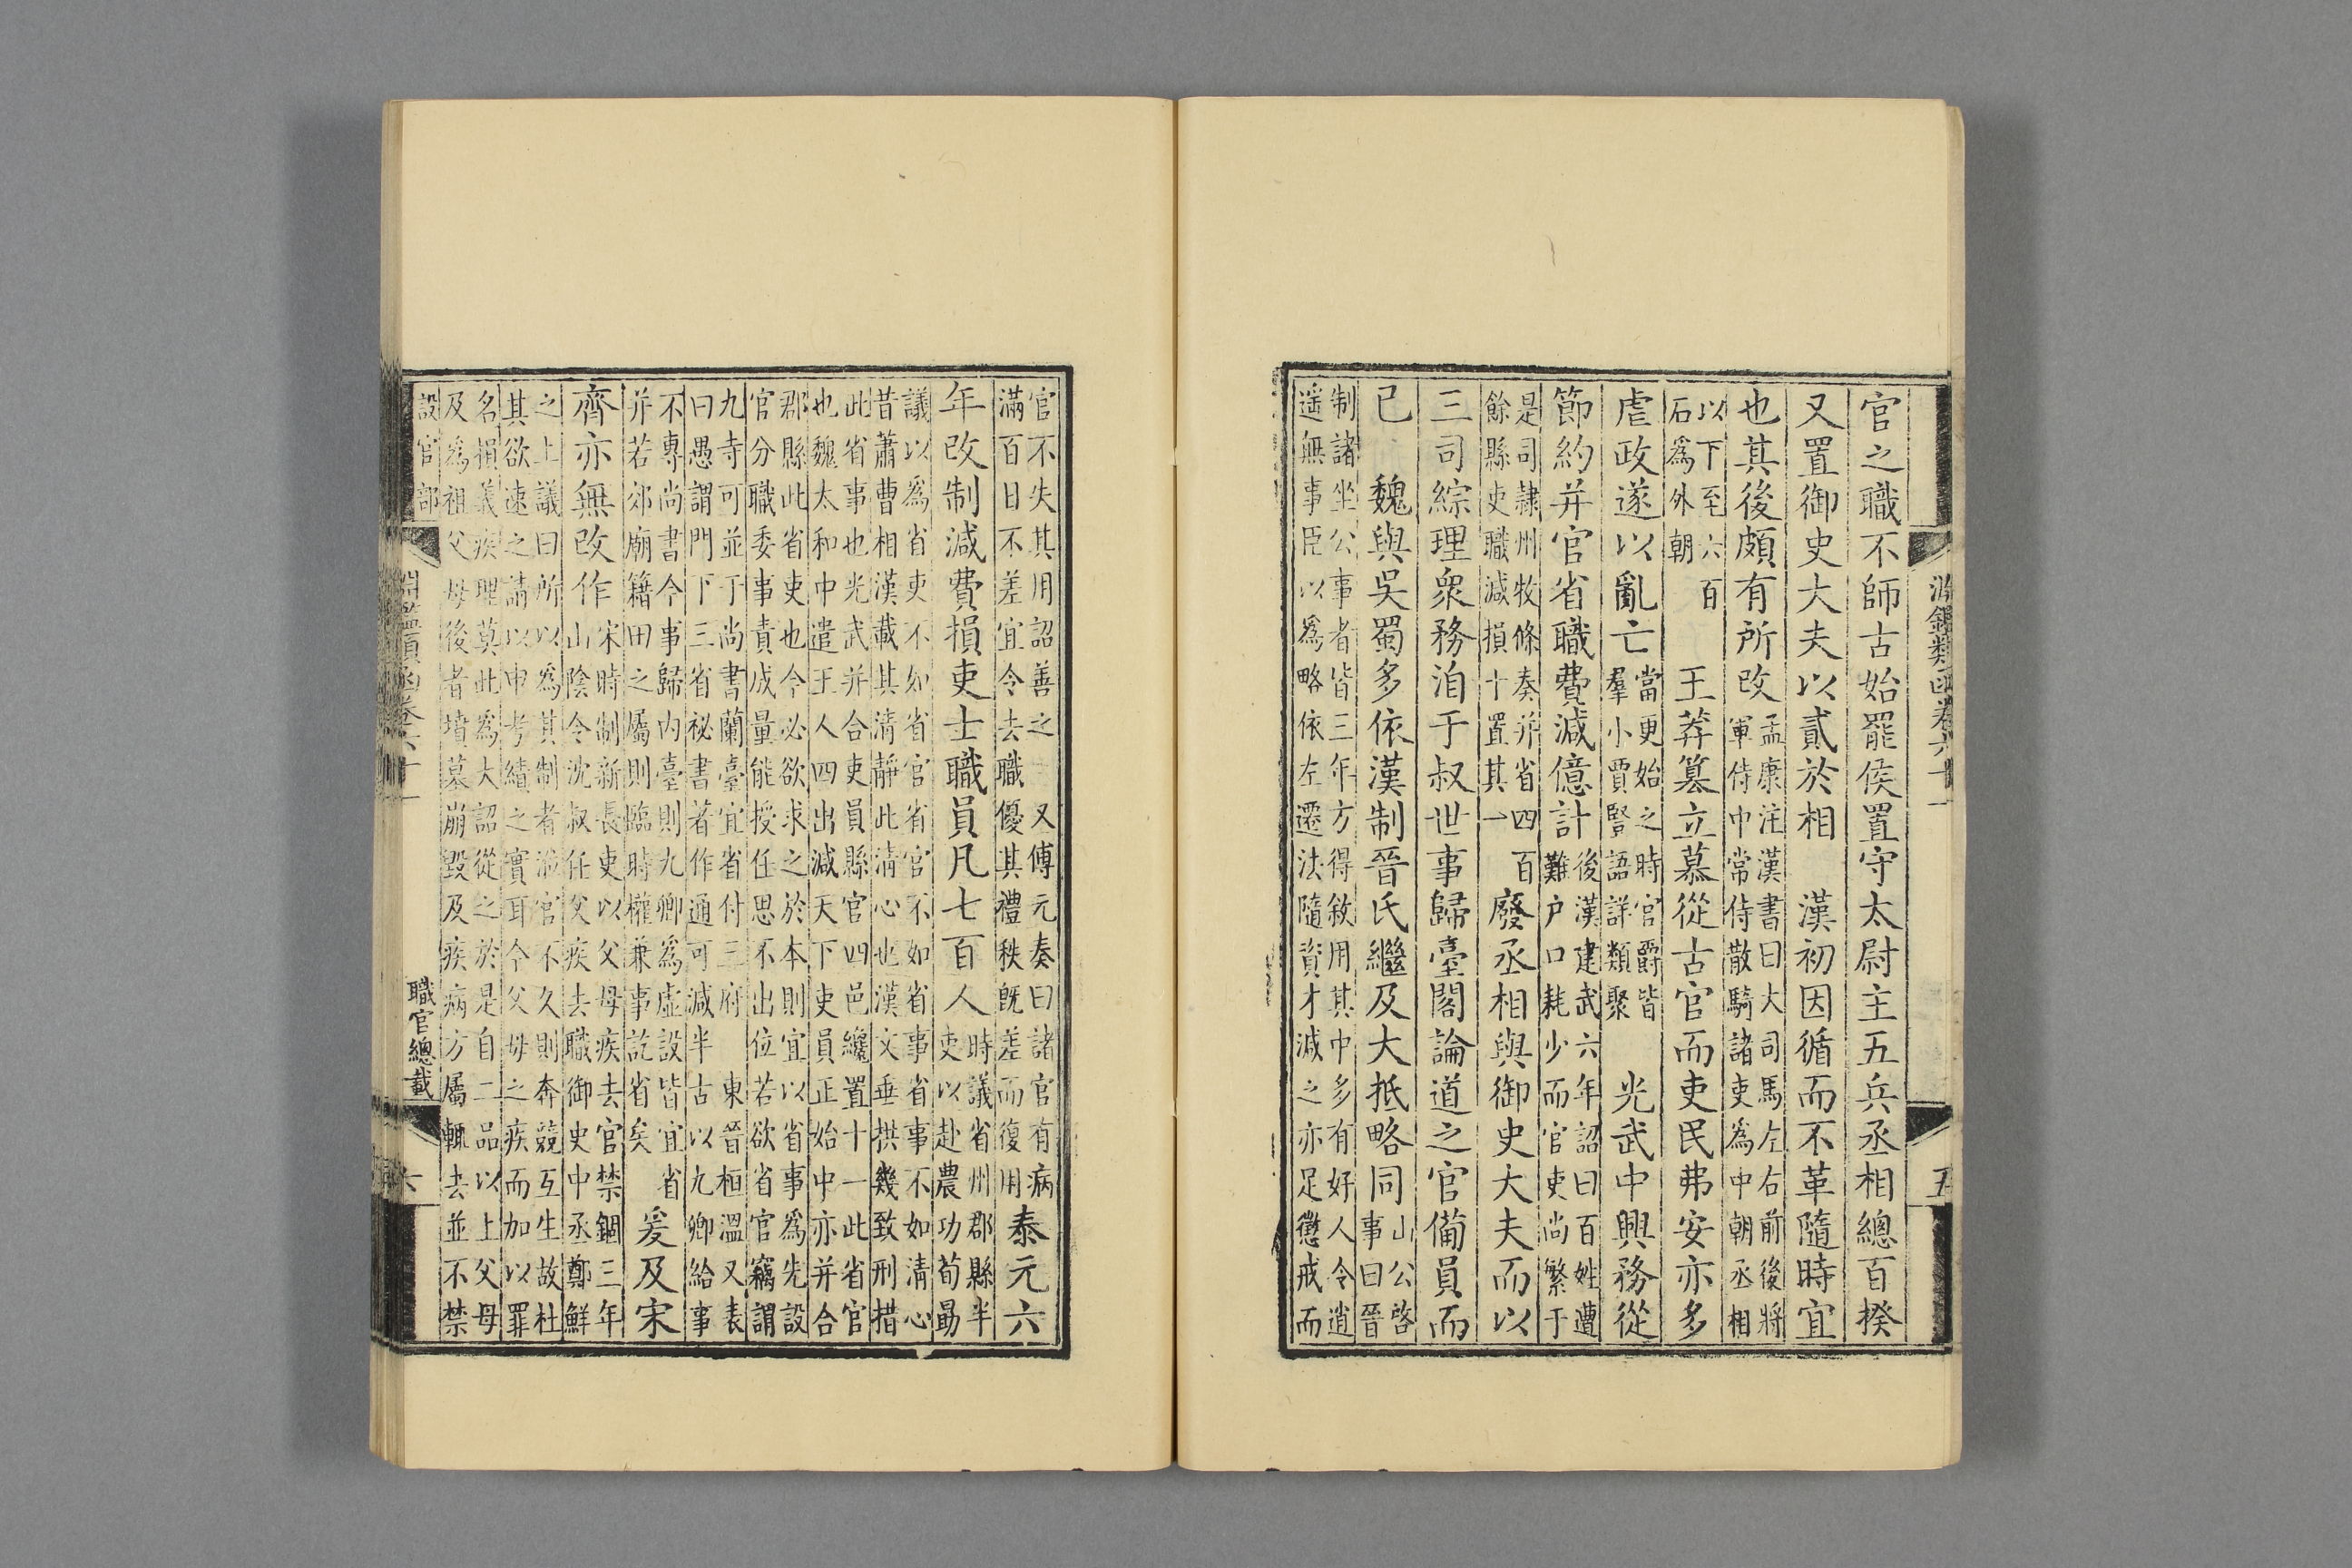 淵鑑類函卷六十一
五
官之職不師古始罷侯置守太尉主五兵丞相總百揆
又置御史大夫以貳於相　漢初因循而不革隨時宜
也其後頗有所改
孟康注漢書曰大司馬左右前後將
軍侍中常侍散騎諸吏為中朝丞相
以下至六百
石為外朝
王莽篡立慕從古官而吏民弗安亦多
虐政遂以亂亡
當更始之時官爵皆
羣小賈豎語詳類聚
光武中興務從
節約并官省職費減億計
後漢建武六年詔曰百姓遭
難户口耗少而官吏尚繁于
是司隷州牧條奏并省四百
餘縣吏職減損十置其一
廢丞相與御史大夫而以
三司綜理衆務洎于叔世事歸臺閣論道之官備員而
已　魏與吳蜀多依漢制晉氏繼及大抵略同
山公啓
事曰晉
制諸坐公事者皆三年方得敘用其中多有好人令逍
遥無事臣以為略依左遷法隨資才減之亦足懲戒而
官不失其用詔善之　又傅元奏曰諸官有病
滿百日不差宜令去職優其禮秩既差而復用
泰元六
年改制減費損吏士職員凡七百人
時議省州郡縣半
吏以赴農功荀勗
議以為省吏不如省官省官不如省事省事不如清心
昔蕭曹相漢載其清靜此清心也漢文垂拱幾致刑措
此省事也光武并合吏員縣官四邑纔置十一此省官
也魏太和中遣王人四出減天下吏員正始中亦并合
郡縣此省吏也今必欲求之於本則宜以省事為先設
官分職委事責成量能授任思不出位若欲省官竊謂
九寺可並于尚書蘭臺宜省付三府　東晉桓溫又表
曰愚謂門下三省祕書著作通可減半古以九卿給事
不專尚書今事歸内臺則九卿為虛設皆宜省
并若郊廟籍田之屬則臨時權兼事訖省矣
爰及宋
齊亦無改作
宋時制新長吏以父母疾去官禁錮三年
山陰令沈叔任父疾去職御史中丞鄭鮮
之上議曰所以為其制者涖官不久則奔競互生故杜
其欲速之請以申考績之實耳今父母之疾而加以罪
名損義疾理莫此為大詔從之於是自二品以上父母
及為祖父母後者墳墓崩毀及疾病方屬輒去並不禁
設官部
淵鑑類函卷六十一
職官總載
六